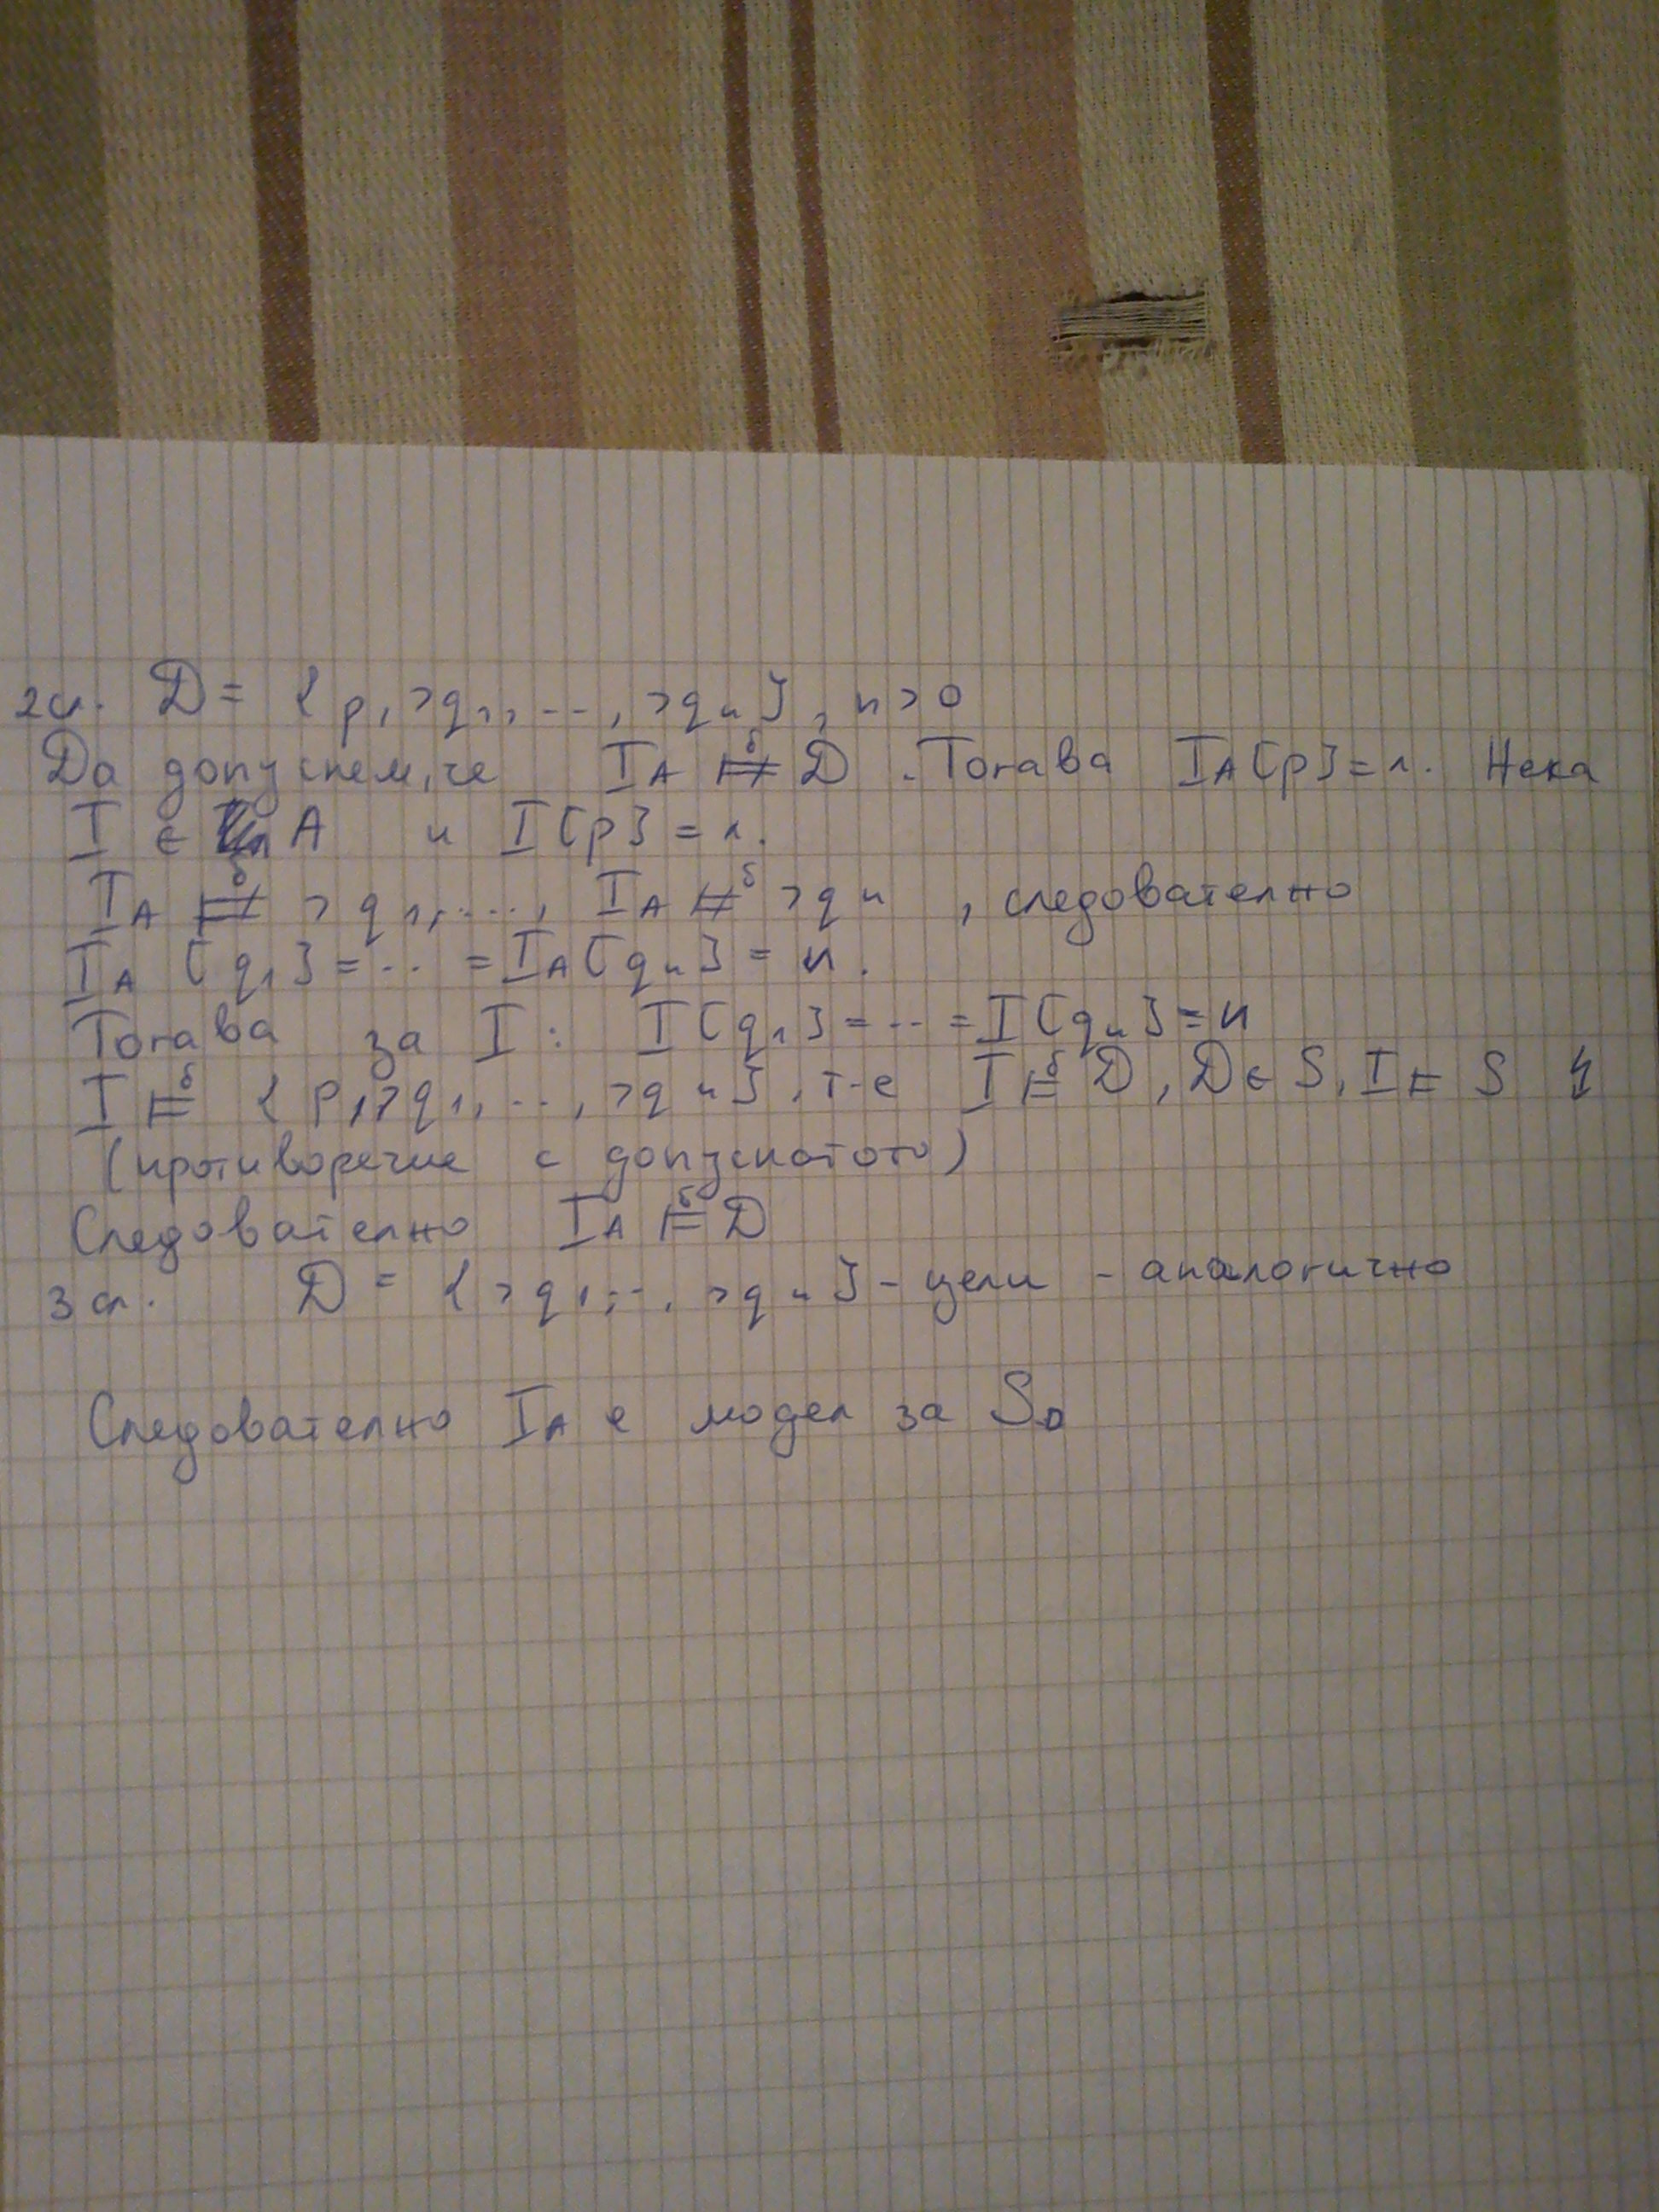 2сл. D = { p, ¬q₁, ..., ¬qₙ }, n > 0
Да допуснем, че I_A ⊭ᵟ D. Тогава I_A[p] = л. Нека
I ∈ A и I[p] = л.
I_A ⊭ᵟ ¬q₁, ..., I_A ⊭ᵟ ¬qₙ, следователно
I_A [q₁] = ... = I_A[qₙ] = и.
Тогава за I: I[q₁] = ... = I[qₙ] = и
I ⊨ᵟ { p, ¬q₁, ..., ¬qₙ }, т-е I ⊨ᵟ D, D ∈ S, I ⊨ S ↯
(противоречие с допуснатото)
Следователно I_A ⊨ᵟ D
3сл. D = { ¬q₁, ..., ¬qₙ } - цели - аналогично
Следователно I_A е модел за S₀